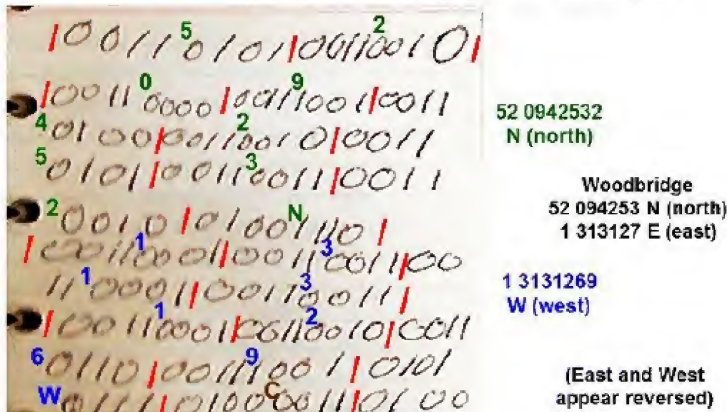 5 2
00110101|00110010|
0 9
|00110000|00111001|0011
4 2
0100|00110010|0011
5 3
0101|00110011|0011
2 N
0010|01001110|
1 3
|00110001|00110011|00
1 3
110001|00110011|
1 2
|00110001|00110010|0011
6 9
0110|00111001|0101
W C
0111|01000011|0100
52 0942532
N (north)
Woodbridge
52 094253 N (north)
1 313127 E (east)
1 3131269
W (west)
(East and West
appear reversed)